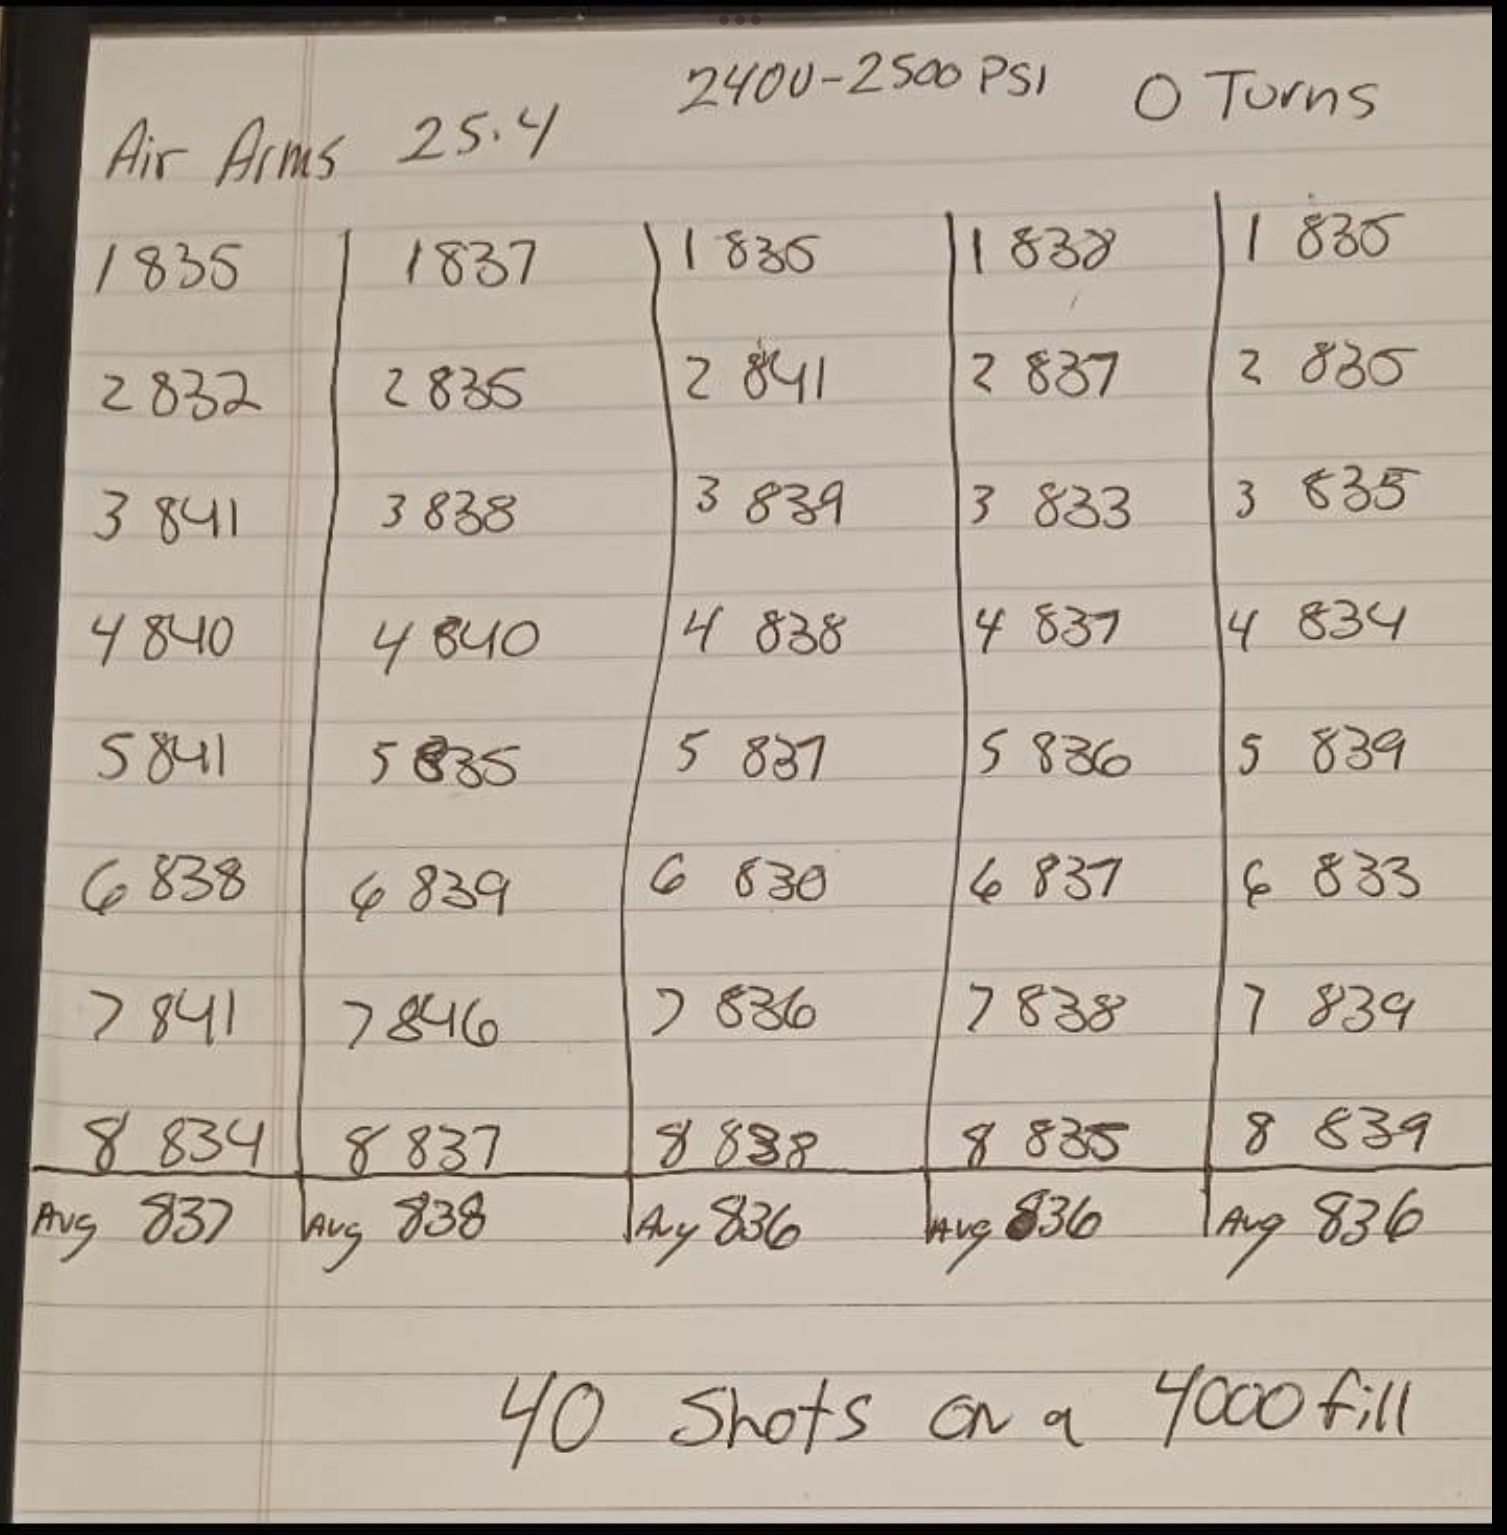 2400-2500 PSI 0 Turns
Air Arms 25.4
1 835 1 837 1 835 1 838 1 835
2 832 2 835 2 841 2 837 2 835
3 841 3 838 3 839 3 833 3 835
4 840 4 840 4 838 4 837 4 834
5 841 5 835 5 837 5 836 5 839
6 838 6 839 6 830 6 837 6 833
7 841 7 846 7 836 7 838 7 839
8 834 8 837 8 838 8 835 8 839
Avg 837 Avg 838 Avg 836 Avg 836 Avg 836
40 Shots on a 4000 fill